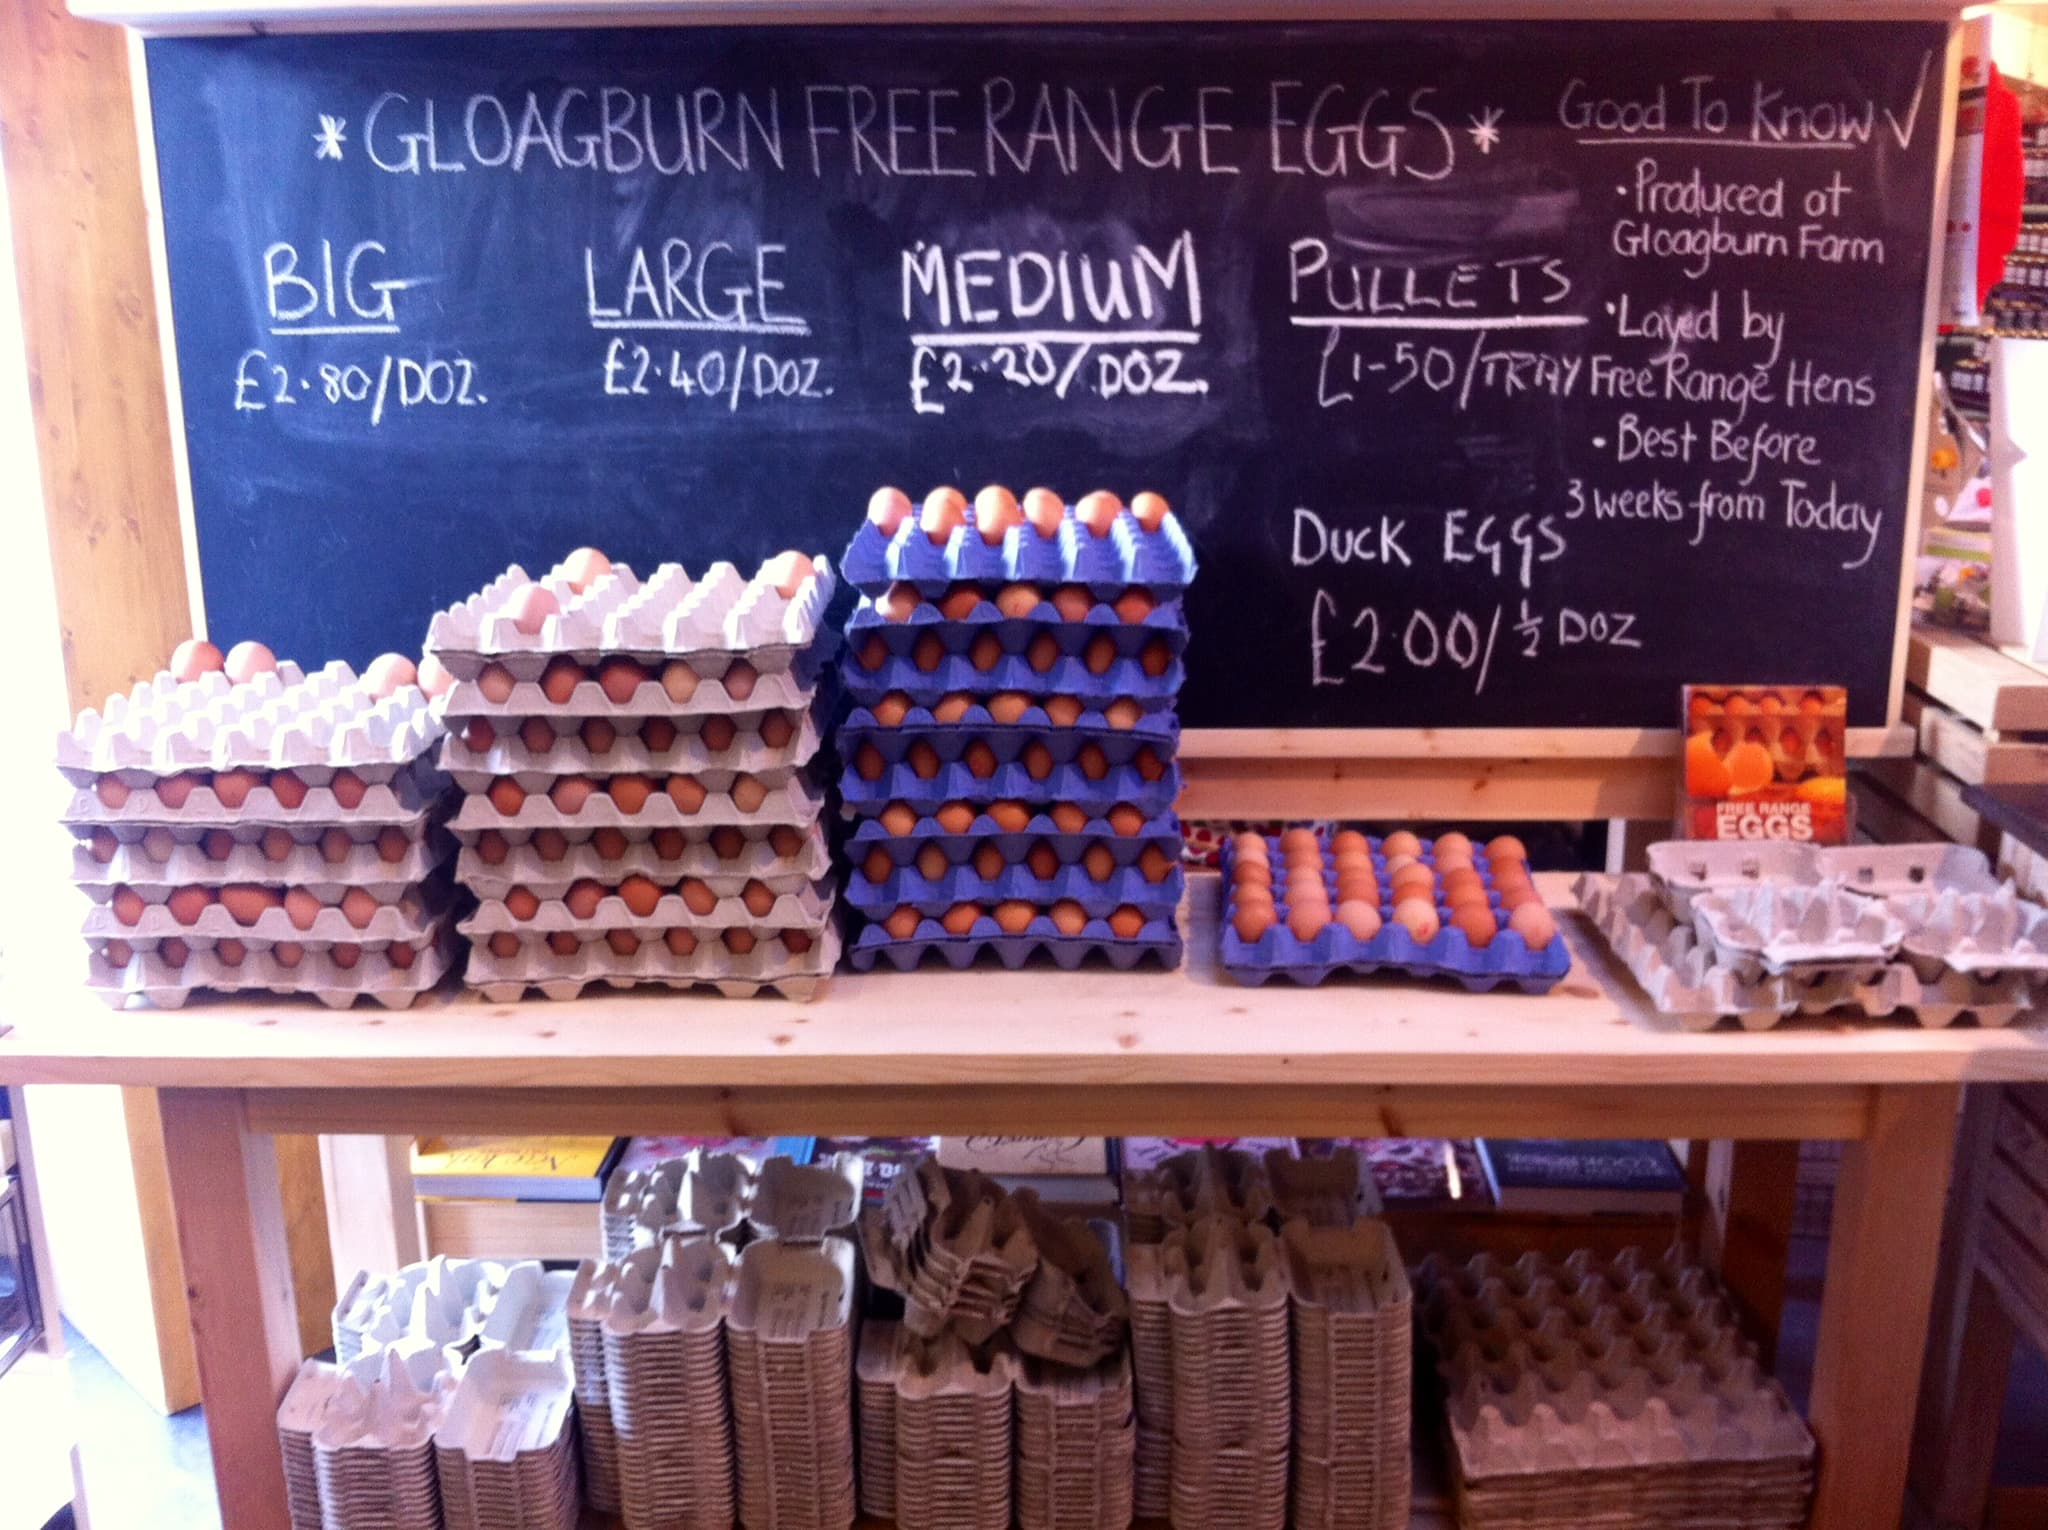 * GLOAGBURN FREE RANGE EGGS *
BIG
£2.80/DOZ.
LARGE
£2.40/DOZ.
MEDIUM
£2.20/DOZ.
PULLETS
£1-50/TRAY
DUCK EGGS
£2.00/½ DOZ
Good To Know ✓
• Produced at
Gloagburn Farm
• Layed by
Free Range Hens
• Best Before
3 weeks from Today
FREE RANGE
EGGS